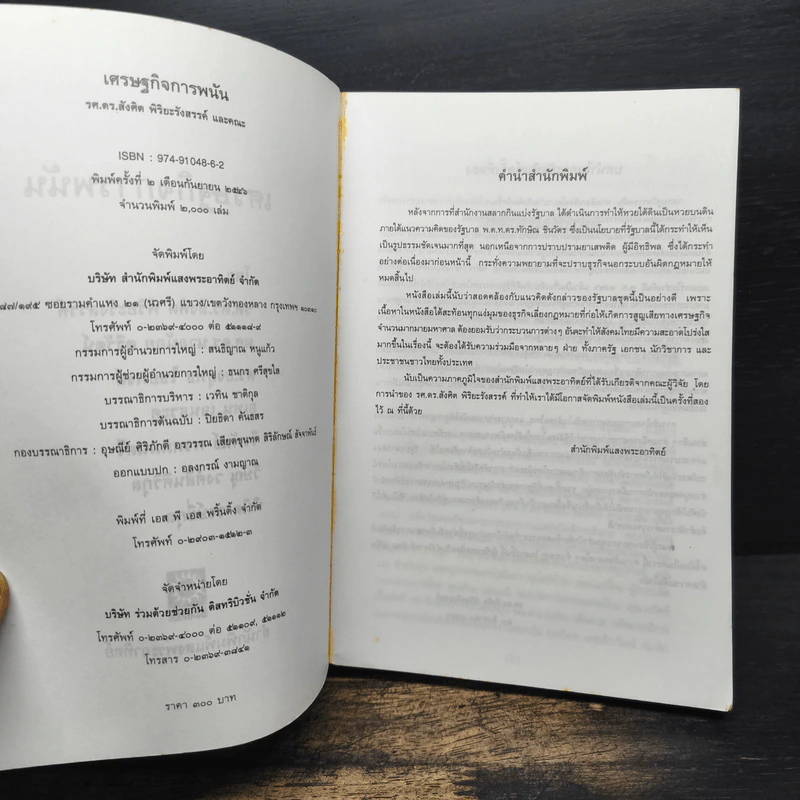 เศรษฐกิจการพนัน
รศ.ดร.สังศิต พิริยะรังสรรค์ และคณะ
ISBN : 974-91048-6-2
พิมพ์ครั้งที่ ๒ เดือนกันยายน ๒๕๔๖
จำนวนพิมพ์ ๒,๐๐๐ เล่ม
จัดพิมพ์โดย
บริษัท สำนักพิมพ์แสงพระอาทิตย์ จำกัด
๘๗/๑๙๕ ซอยรามคำแหง ๒๑ (นวศรี) แขวง/เขตวังทองหลาง กรุงเทพฯ ๑๐๓๑๐
โทรศัพท์ ๐-๒๓๖๙-๔๐๐๐ ต่อ ๕๒๑๑๘-๙
กรรมการผู้อำนวยการใหญ่ : สนธิญาณ หนูแก้ว
กรรมการผู้ช่วยผู้อำนวยการใหญ่ : ธนกร ศรีสุขใส
บรรณาธิการบริหาร : เวทิน ชาติกุล
บรรณาธิการต้นฉบับ : ปิยธิดา คันธสร
กองบรรณาธิการ : อุษณีย์ ศิริภักดี อรวรรณ เสียดขุนทด สิริลักษณ์ อัจจาพันธ์
ออกแบบปก : อลงกรณ์ งามญาณ
พิมพ์ที่ เอส พี เอส พริ้นติ้ง จำกัด
โทรศัพท์ ๐-๒๙๐๓-๑๕๑๒-๓
จัดจำหน่ายโดย
บริษัท ร่วมด้วยช่วยกัน ดิสทริบิวชั่น จำกัด
โทรศัพท์ ๐-๒๓๖๙-๔๐๐๐ ต่อ ๕๒๑๐๙, ๕๒๑๑๒
โทรสาร ๐-๒๓๖๙-๓๘๔๑
ราคา ๓๐๐ บาท
คำนำสำนักพิมพ์
หลังจากการที่สำนักงานสลากกินแบ่งรัฐบาล ได้ดำเนินการทำให้หวยใต้ดินเป็นหวยบนดิน
ภายใต้แนวความคิดของรัฐบาล พ.ต.ท.ดร.ทักษิณ ชินวัตร ซึ่งเป็นนโยบายที่รัฐบาลนี้ได้กระทำให้เห็น
เป็นรูปธรรมชัดเจนมากที่สุด นอกเหนือจากการปราบปรามยาเสพติด ผู้มีอิทธิพล ซึ่งได้กระทำ
อย่างต่อเนื่องมาก่อนหน้านี้ กระทั่งความพยายามที่จะปราบธุรกิจนอกระบบอันผิดกฎหมายให้
หมดสิ้นไป
หนังสือเล่มนี้นับว่าสอดคล้องกับแนวคิดดังกล่าวของรัฐบาลชุดนี้เป็นอย่างดี เพราะ
เนื้อหาในหนังสือได้สะท้อนทุกแง่มุมของธุรกิจเลี่ยงกฎหมายที่ก่อให้เกิดการสูญเสียทางเศรษฐกิจ
จำนวนมากมายมหาศาล ต้องยอมรับว่ากระบวนการต่างๆ อันจะทำให้สังคมไทยมีความสะอาดโปร่งใส
มากขึ้นในเรื่องนี้ จะต้องได้รับความร่วมมือจากหลายๆ ฝ่าย ทั้งภาครัฐ เอกชน นักวิชาการ และ
ประชาชนชาวไทยทั้งประเทศ
นับเป็นความภาคภูมิใจของสำนักพิมพ์แสงพระอาทิตย์ที่ได้รับเกียรติจากคณะผู้วิจัย โดย
การนำของ รศ.ดร.สังศิต พิริยะรังสรรค์ ที่ทำให้เราได้มีโอกาสจัดพิมพ์หนังสือเล่มนี้เป็นครั้งที่สอง
ไว้ ณ ที่นี้ด้วย
สำนักพิมพ์แสงพระอาทิตย์